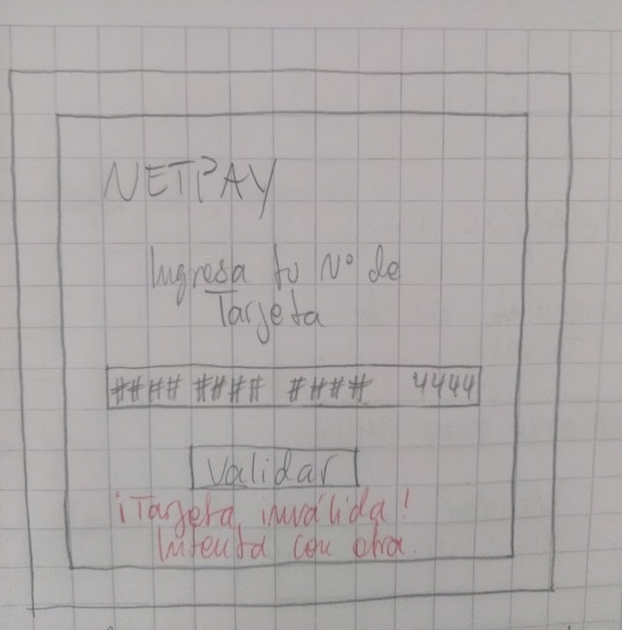 NETPAY
Ingresa tu N° de
Tarjeta
#### #### #### 4444
Validar
¡Tarjeta inválida!
Intenta con otra.